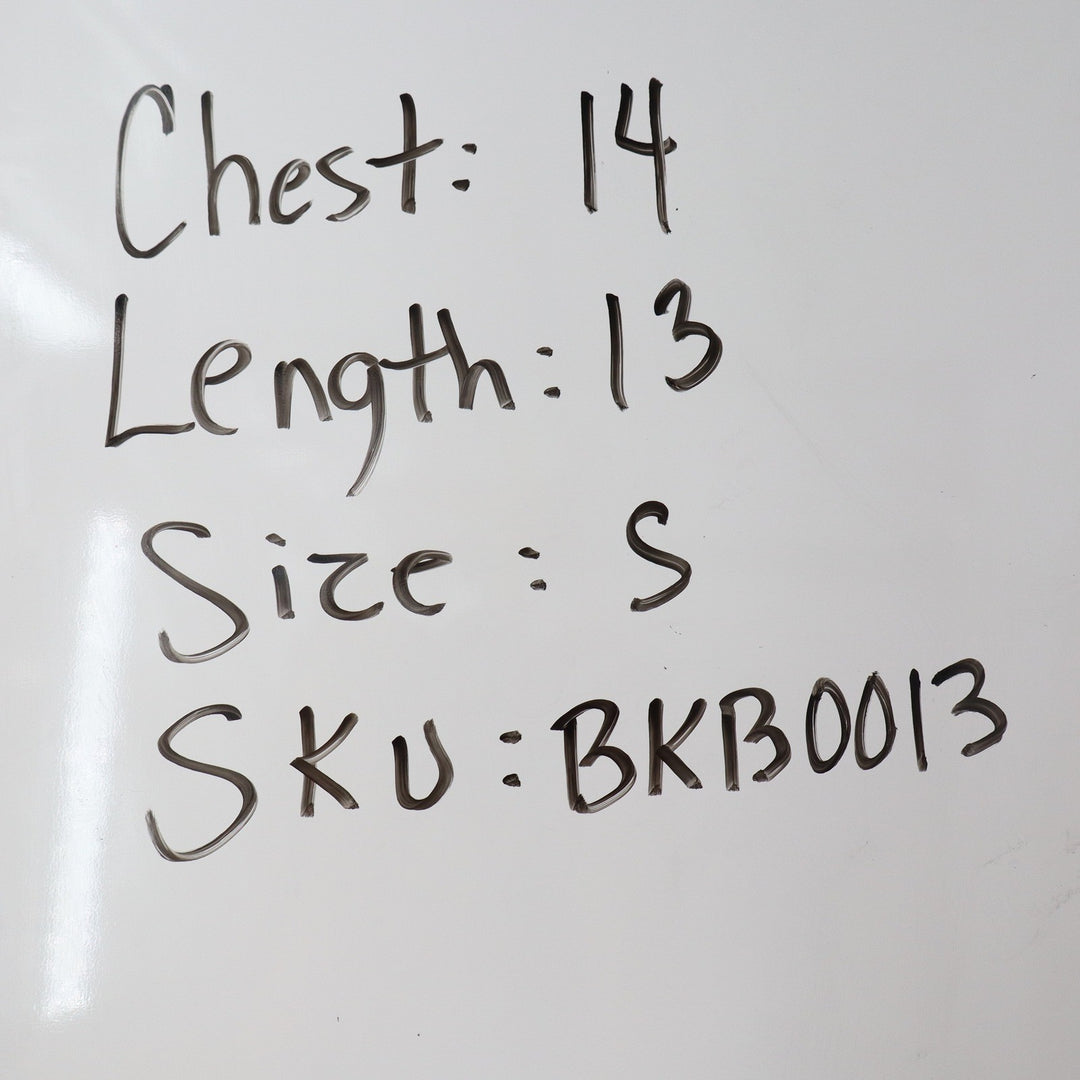 Chest: 14
Length: 13
Size: S
SKU: BKB0013